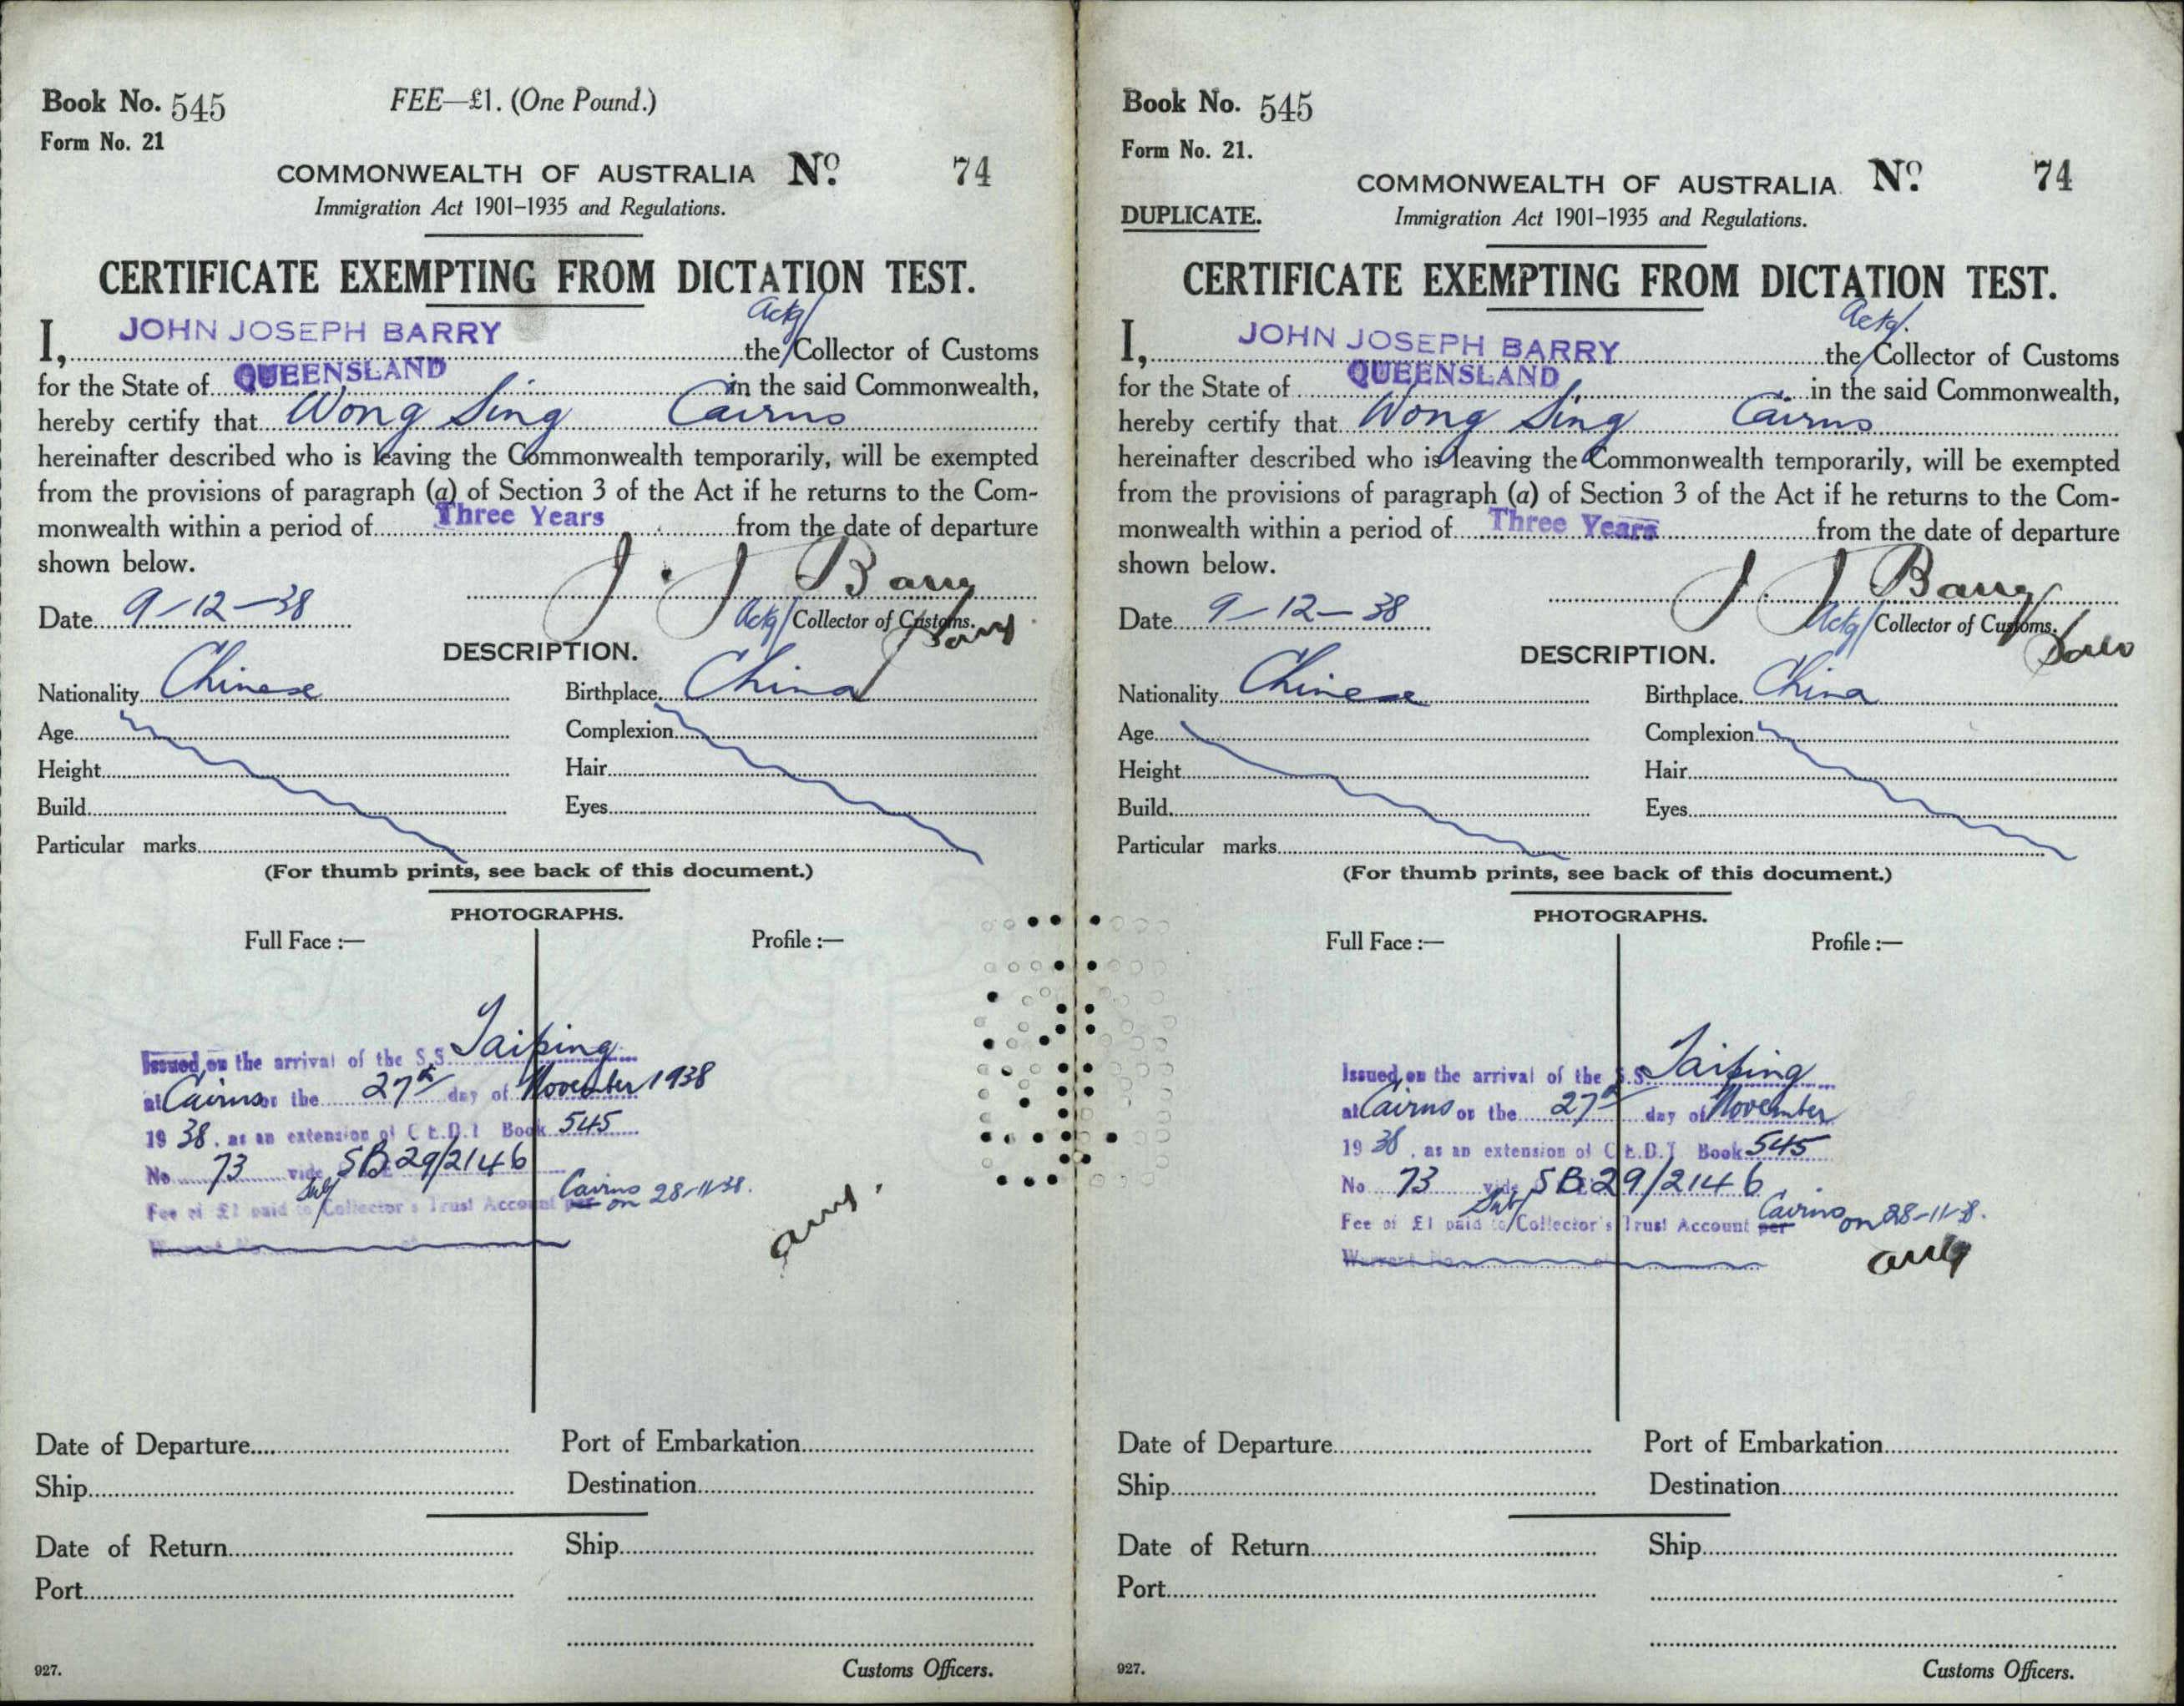 Book No. 545
FEE—£1. (One Pound.)
Form No. 21
COMMONWEALTH OF AUSTRALIA No. 74
Immigration Act 1901-1935 and Regulations.
CERTIFICATE EXEMPTING FROM DICTATION TEST.
I, JOHN JOSEPH BARRY the Actg/ Collector of Customs
for the State of QUEENSLAND in the said Commonwealth,
hereby certify that Wong Sing Cairns
hereinafter described who is leaving the Commonwealth temporarily, will be exempted
from the provisions of paragraph (a) of Section 3 of the Act if he returns to the Com-
monwealth within a period of Three Years from the date of departure
shown below.
J. J Barry
Date 9-12-38
Actg/ Collector of Customs.
DESCRIPTION.
Nationality Chinese Birthplace China
Age Complexion
Height Hair
Build Eyes
Particular marks
(For thumb prints, see back of this document.)
PHOTOGRAPHS.
Full Face :— Profile :—
Issued on the arrival of the S.S. Taiping
at Cairns on the 27th day of November 1938
1938, as an extension of C.E.D.T Book 545
No 73 vide SB 29/2146
Fee of £1 paid to Sub/ Collector's Trust Account per Cairns on 28-11-38.
Date of Departure Port of Embarkation
Ship Destination
Date of Return Ship
Port
927. Customs Officers.
Book No. 545
Form No. 21.
COMMONWEALTH OF AUSTRALIA No. 74
DUPLICATE.
Immigration Act 1901-1935 and Regulations.
CERTIFICATE EXEMPTING FROM DICTATION TEST.
I, JOHN JOSEPH BARRY the Actg/ Collector of Customs
for the State of QUEENSLAND in the said Commonwealth,
hereby certify that Wong Sing Cairns
hereinafter described who is leaving the Commonwealth temporarily, will be exempted
from the provisions of paragraph (a) of Section 3 of the Act if he returns to the Com-
monwealth within a period of Three Years from the date of departure
shown below.
J J Barry
Date 9-12-38
Actg/ Collector of Customs.
DESCRIPTION.
Nationality Chinese Birthplace China
Age Complexion
Height Hair
Build Eyes
Particular marks
(For thumb prints, see back of this document.)
PHOTOGRAPHS.
Full Face :— Profile :—
Issued on the arrival of the S.S. Taiping
at Cairns on the 27th day of November
1938, as an extension of C.E.D.T Book 545
No 73 vide SB 29/2146
Fee of £1 paid to Sub/ Collector's Trust Account per Cairns on 28-11-8.
Date of Departure Port of Embarkation
Ship Destination
Date of Return Ship
Port
927. Customs Officers.